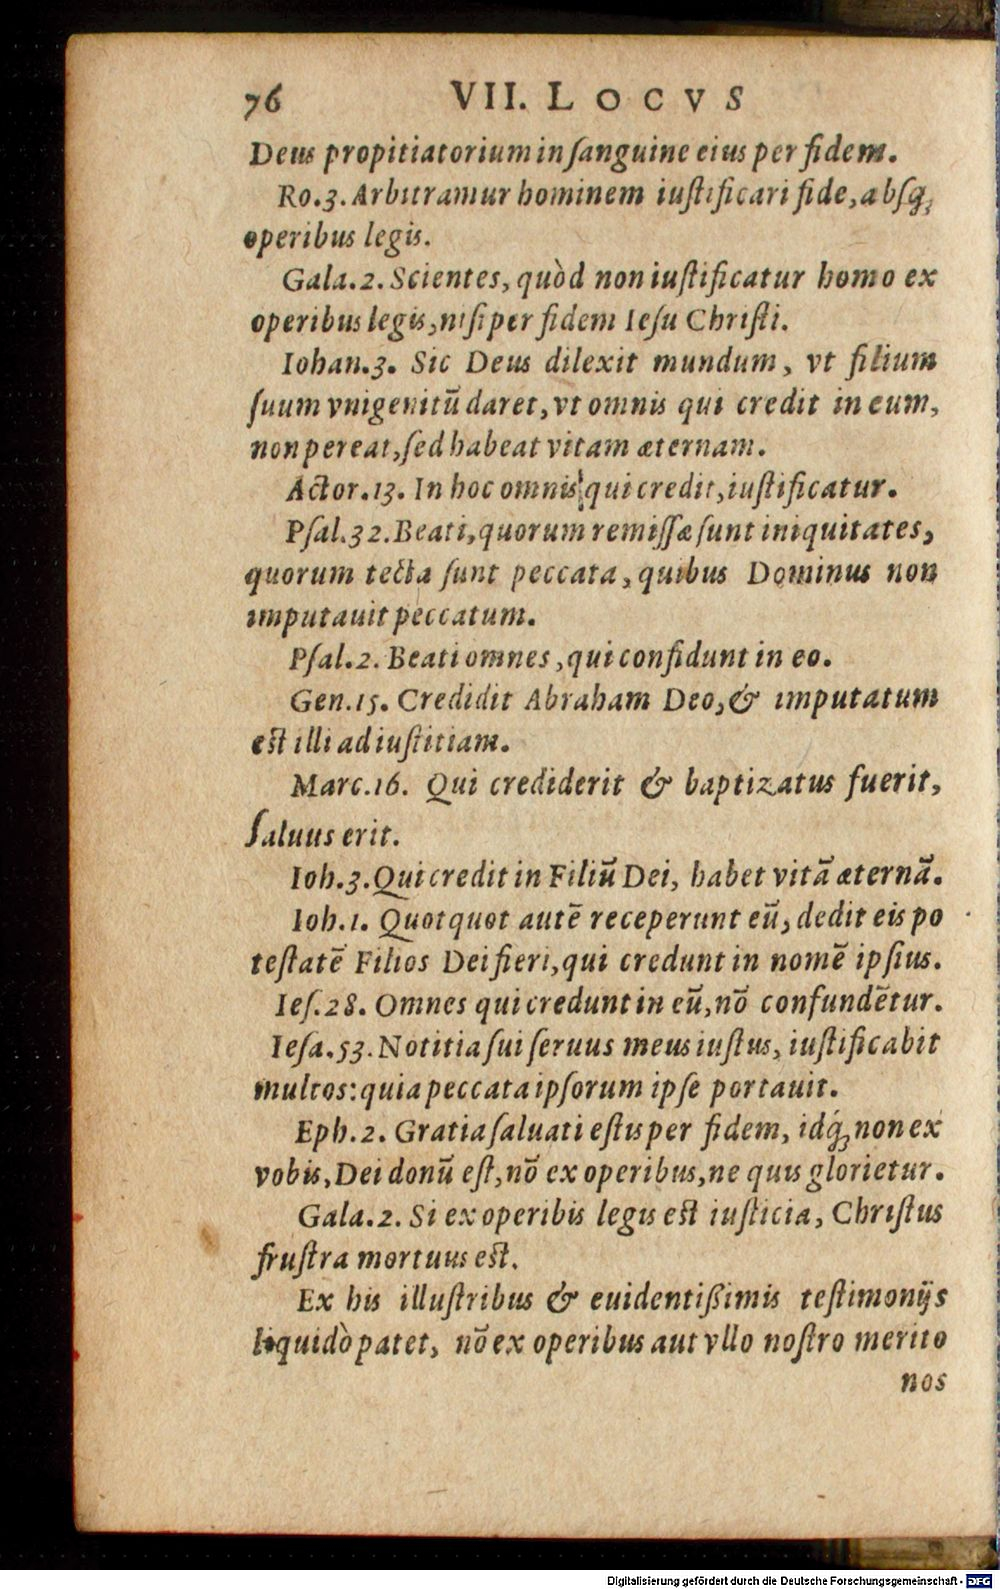 76 VII. LOCVS
Deus propitiatorium in ſanguine eius per fidem.
Ro.3. Arbitramur hominem iuſtificari fide, abſq;
operibus legis.
Gala.2. Scientes, quòd non iuſtificatur homo ex
operibus legis, niſi per fidem Ieſu Chriſti.
Iohan.3. Sic Deus dilexit mundum, vt filium
ſuum vnigenitū daret, vt omnis qui credit in eum,
non pereat, ſed habeat vitam æternam.
Actor.13. In hoc omnis qui credit, iuſtificatur.
Pſal.32. Beati, quorum remiſſæ ſunt iniquitates,
quorum tecta ſunt peccata, quibus Dominus non
imputauit peccatum.
Pſal.2. Beati omnes, qui confidunt in eo.
Gen.15. Credidit Abraham Deo, & imputatum
est illi ad iuſtitiam.
Marc.16. Qui crediderit & baptizatus fuerit,
ſaluus erit.
Ioh.3. Qui credit in Filiū Dei, habet vitā æternā.
Ioh.1. Quotquot autē receperunt eū, dedit eis po
teſtatē Filios Dei fieri, qui credunt in nomē ipſius.
Ieſ.28. Omnes qui credunt in eū, nō confundētur.
Ieſa.53. Notitia ſui ſeruus meus iuſtus, iuſtificabit
multos: quia peccata ipſorum ipſe portauit.
Eph.2. Gratia ſaluati eſtis per fidem, idq́; non ex
vobis, Dei donū eſt, nō ex operibus, ne quis glorietur.
Gala.2. Si ex operibis legis est iuſticia, Chriſtus
fruſtra mortuus est.
Ex his illuſtribus & euidentißimis teſtimonijs
liquidò patet, nō ex operibus aut vllo noſtro merito
nos
Digitalisierung gefördert durch die Deutsche Forschungsgemeinschaft - DFG